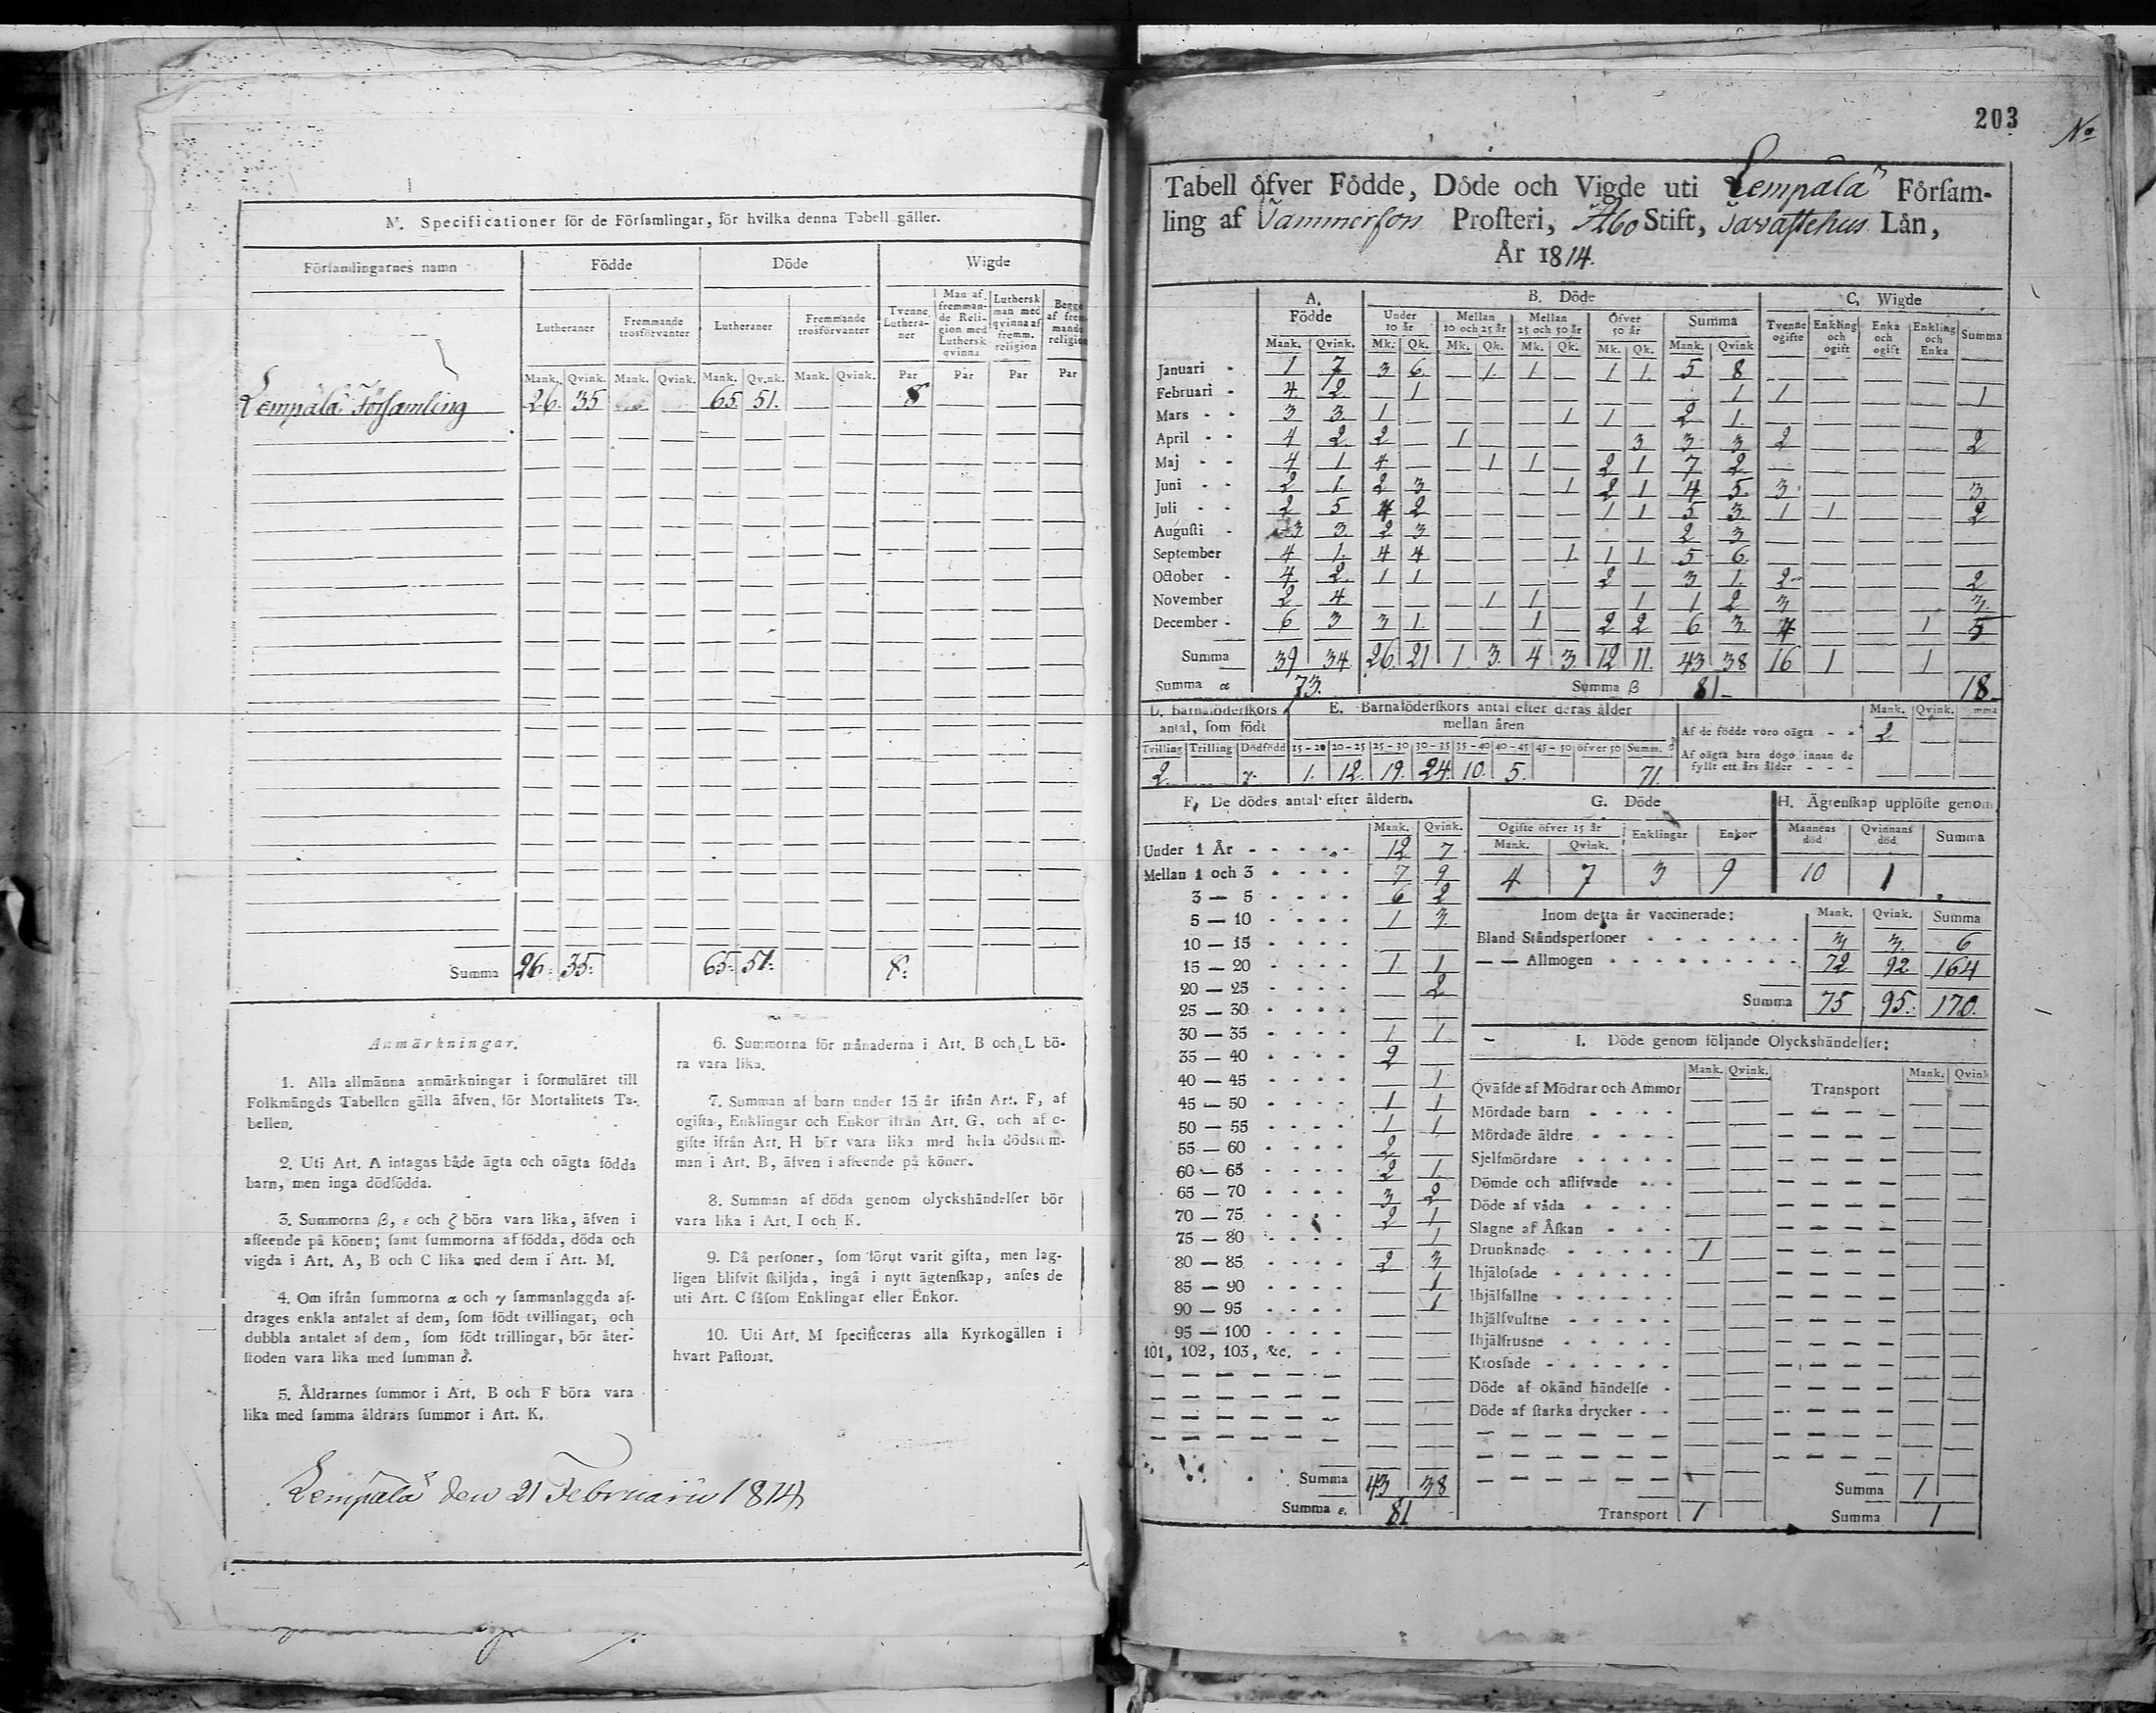 M. Specificationer för de Förſamlingar, för hvilka denna Tabell gäller.
Förſamlingarnes namn | Födde | Döde | Wigde
Lutheraner | Fremmande trosförvanter | Lutheraner | Fremmande trosförvanter | Tvenne Lutheraner | Man af fremmande Religion med Lutherſk qvinna | Lutherſk man med qvinna af fremm. religion | Begge af fremmande religion
Mank. | Qvink. | Mank. | Qvink. | Mank. | Qvink. | Mank. | Qvink. | Par | Par | Par | Par
Lempälä Förſamling | 26. | 35 | | | 65. | 51. | | | 8
Summa | 26. | 35. | | | 65. | 51. | | | 8.
Anmärkningar.
1. Alla allmänna anmärkningar i formuläret till
Folkmängds Tabellen gälla äfven för Mortalitets Ta-
bellen.
2. Uti Art. A intagas både ägta och oägta födda
barn, men inga dödfödda.
3. Summorna β, ε och ζ böra vara lika, äfven i
afſeende på könen; ſamt ſummorna af födda, döda och
vigda i Art. A, B och C lika med dem i Art. M.
4. Om ifrån ſummorna α och γ ſammanlaggda af-
drages enkla antalet af dem, ſom födt tvillingar, och
dubbla antalet af dem, ſom födt trillingar, bör åter-
ſtoden vara lika med ſumman δ.
5. Åldrarnes ſummor i Art. B och F böra vara
lika med ſamma åldrars ſummor i Art. K.
6. Summorna för månaderna i Art. B och L bö-
ra vara lika.
7. Summan af barn under 15 år ifrån Art. F, af
ogifta, Enklingar och Enkor ifrån Art. G, och af o-
gifte ifrån Art. H bör vara lika med hela dödsſum-
man i Art. B, äfven i afſeende på könen.
8. Summan af döda genom olyckshändelſer bör
vara lika i Art. I och K.
9. Då perſoner, ſom förut varit gifta, men lag-
ligen blifvit ſkiljda, ingå i nytt ägtenſkap, anſes de
uti Art. C ſåſom Enklingar eller Enkor.
10. Uti Art. M ſpecificeras alla Kyrkogällen i
hvart Paſtorat.
Lempälä den 21 Februarii 1814
203
No
Tabell öfver Födde, Döde och Vigde uti Lempälä Förſam-
ling af Tammerfon Proſteri, Åbo Stift, Tavaſtehus Län,
År 1814.
A. Födde | B. Döde | C. Wigde
Under 10 år | Mellan 10 och 25 år | Mellan 25 och 50 år | Öfver 50 år | Summa | Tvenne ogifte | Enkling och ogift | Enka och ogift | Enkling och Enka | Summa
Mank. | Qvink. | Mk. | Qk. | Mk. | Qk. | Mk. | Qk. | Mk. | Qk. | Mank. | Qvink
Januari | 1 | 7 | 3 | 6 | — | 1. | 1 | — | 1 | 1. | 5 | 8 | — | — | — | — | —
Februari | 4. | 2 | — | 1 | — | — | — | — | — | — | — | 1 | 1 | — | — | — | 1
Mars | 3 | 3. | 1 | — | — | — | — | 1 | 1 | — | 2 | 1. | — | — | — | — | —
April | 4 | 2 | 2 | — | 1 | — | — | — | — | 3 | 3 | 3 | 2 | — | — | — | 2
Maj | 4 | 1 | 4 | — | — | 1 | 1 | — | 2 | 1 | 7 | 2 | — | — | — | — | —
Juni | 2 | 1. | 2 | 3 | — | — | — | 1 | 2 | 1 | 4 | 5. | 3 | — | — | — | 3
Juli | 2 | 5 | 4 | 2 | — | — | — | — | 1 | 1 | 5 | 3 | 1 | 1 | — | — | 2
Auguſti | 3 | 3. | 2 | 3 | — | — | — | — | — | — | 2 | 3 | — | — | — | — | —
September | 4 | 1. | 4 | 4 | — | — | — | 1. | 1 | 1. | 5 | 6. | — | — | — | — | —
October | 4 | 2. | 1 | 1 | — | — | — | — | 2 | — | 3 | 1. | 2 | — | — | — | 2
November | 2 | 4 | — | — | — | 1 | 1 | — | — | 1 | 1 | 2 | 3 | — | — | — | 3.
December | 6 | 3 | 3 | 1 | — | — | 1 | — | 2 | 2 | 6 | 3. | 4 | — | — | 1 | 5
Summa | 39 | 34. | 26. | 21 | 1. | 3. | 4 | 3. | 12 | 11. | 43 | 38 | 16 | 1 | — | 1
Summa α 73. | Summa β 81 | 18
D. Barnaföderſkors antal, ſom födt
Tvilling | Trilling | Dödfödd
2. | | γ.
E. Barnaföderſkors antal efter deras ålder mellan åren
15-20 | 20-25 | 25-30 | 30-35 | 35-40 | 40-45 | 45-50 | öfver 50 | Summ. δ
1. | 12. | 19. | 24. | 10. | 5. | | | 71.
Mank. | Qvink.
Af de födde voro oägta | 2 | —
Af oägta barn dogo innan de fyllt ett års ålder | — | —
F. De dödes antal efter åldern.
Mank. | Qvink.
Under 1 År | 12 | 7
Mellan 1 och 3 | 7 | 9
3 — 5 | 6 | 2
5 — 10 | 1 | 3.
10 — 15 | — | —
15 — 20 | 1 | 1
20 — 25 | — | 2
25 — 30 | — | —
30 — 35 | 1 | 1
35 — 40 | 2 | —
40 — 45 | — | 1
45 — 50 | 1 | 1
50 — 55 | 1 | 1
55 — 60 | 2 | —
60 — 65 | 2 | 1
65 — 70 | 3 | 2
70 — 75 | 2 | 1
75 — 80 | — | 1
80 — 85 | 2 | 3
85 — 90 | — | 1
90 — 95 | — | 1
95 — 100 | — | —
101, 102, 103, &c. | — | —
Summa | 43 | 38
Summa ε. 81
G. Döde
Ogifte öfver 15 år | Enklingar | Enkor
Mank. | Qvink.
4 | 7 | 3 | 9
H. Ägtenſkap upplöſte genom
Mannens död | Qvinnans död | Summa
10 | 1
Inom detta år vaccinerade: | Mank. | Qvink. | Summa
Bland Ståndsperſoner | 3 | 3. | 6
— — Allmogen | 72 | 92 | 164
Summa | 75 | 95. | 170.
I. Döde genom följande Olyckshändelſer:
Mank. | Qvink. | Transport | Mank. | Qvink
Qväfde af Mödrar och Ammor
Mördade barn
Mördade äldre
Sjelfmördare
Dömde och aflifvade
Döde af våda
Slagne af Åſkan
Drunknade | 1
Ihjäloſade
Ihjälfallne
Ihjälſvultne
Ihjälfrusne
Kroſſade
Döde af okänd händelſe
Döde af ſtarka drycker
Summa | 1
Transport | 1 | Summa | 1